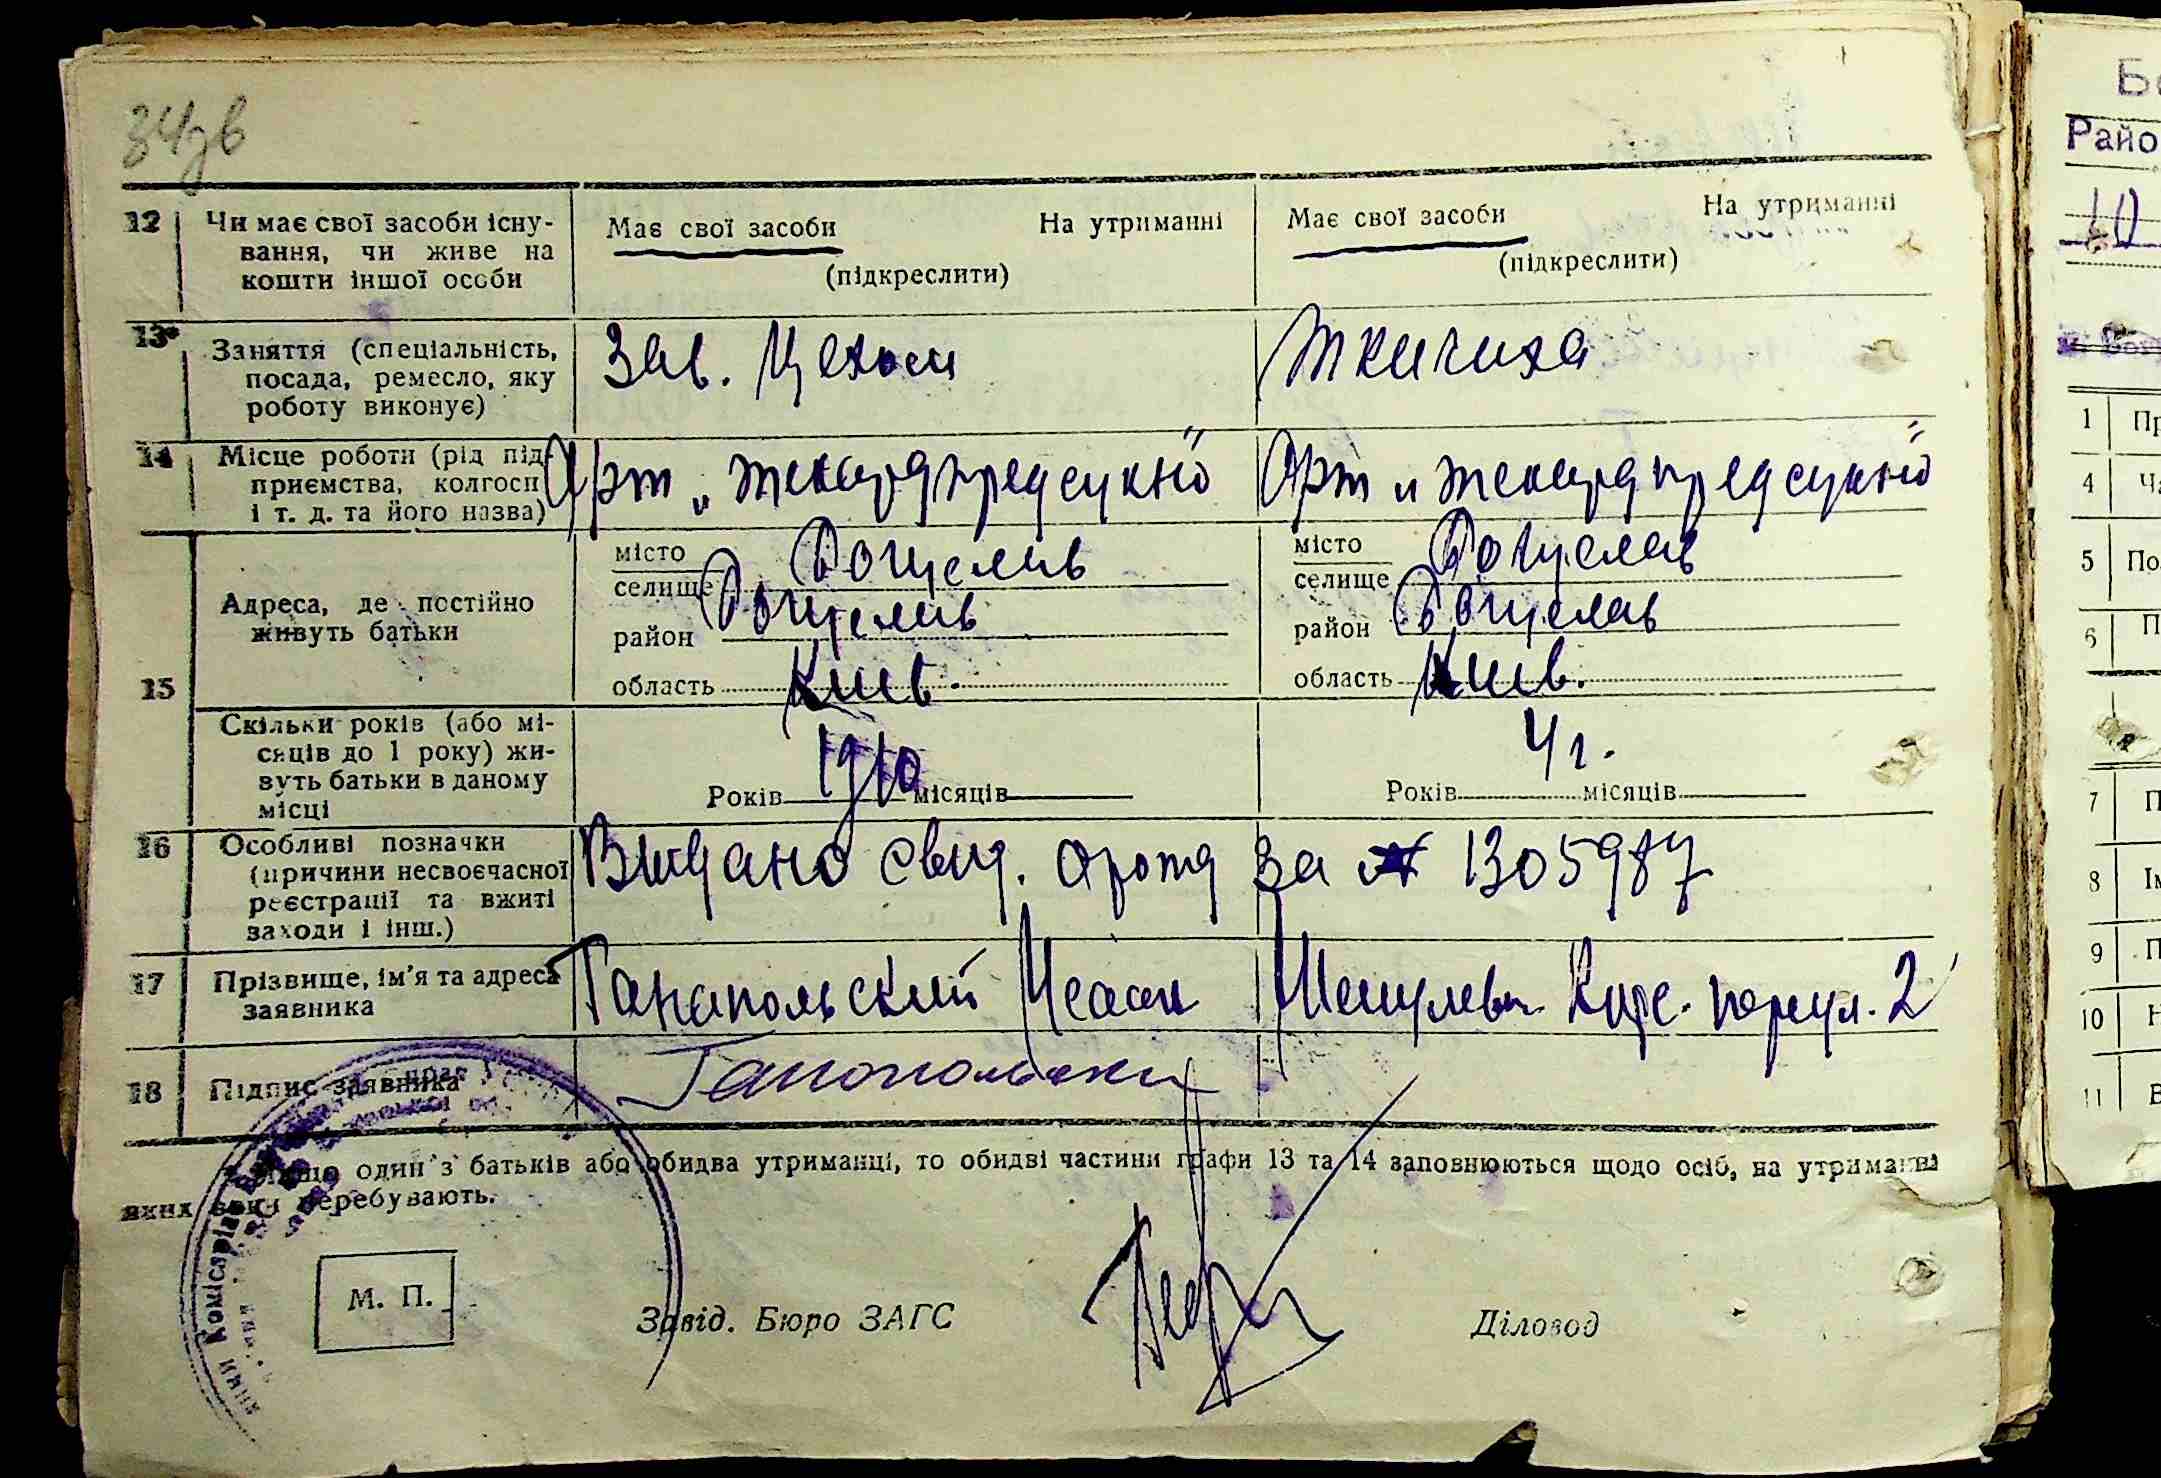 34зв
12 Чи має свої засоби існу-
вання, чи живе на
кошти іншої особи
Має свої засоби На утриманні
(підкреслити)
Має свої засоби На утриманні
(підкреслити)
13* Заняття (спеціальність,
посада, ремесло, яку
роботу виконує)
Зав. Цехом
Ткачиха
14 Місце роботи (рід під-
приємства, колгосп
і т. д. та його назва)
Арт
Арт
15 Адреса, де постійно
живуть батьки
місто Богуслав
селище
район Богуслав
область Київ.
місто Богуслав
селище
район Богуслав
область Київ.
Скільки років (або мі-
сяців до 1 року) жи-
вуть батьки в даному
місці
Років 1910 місяців
4 г.
Років місяців
16 Особливі позначки
(причини несвоєчасної
реєстрації та вжиті
заходи і інш.)
Видано свид. за № 1305987
17 Прізвище, ім'я та адреса
заявника
Ганапольский переул. 2
18 Підпис заявника
Ганопольски
Якщо один з батьків або обидва утриманці, то обидві частини графи 13 та 14 заповнюються щодо осіб, на утриманні
яких вони перебувають.
М. П.
Завід. Бюро ЗАГС
Діловод
Райо
10
1
4
5 По
6 П
7 П
8 Ім
9 П
10 Н
11 В